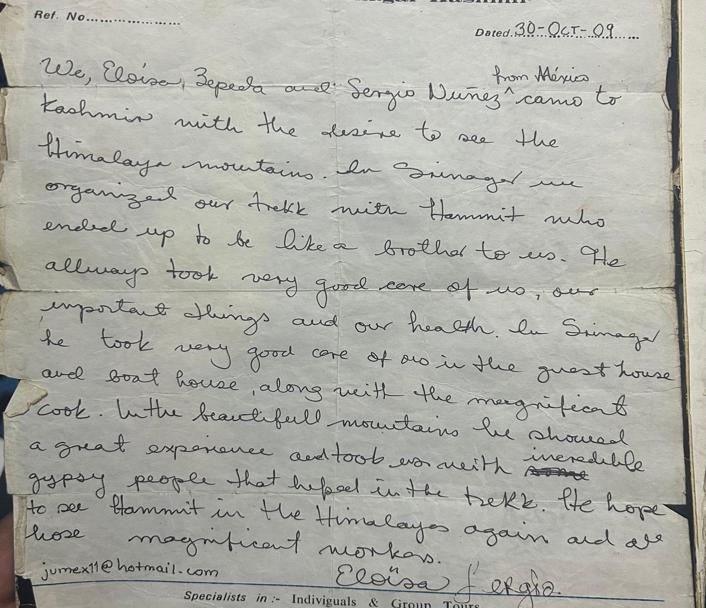 Ref. No......................
Dated.30-OCT-09......
We, Eloísa, Zepeda and Sergio Nuñez ^ from México came to
Kashmir with the desire to see the
Himalaya mountains. In Srinagar we
organized our trekk with Hammit who
ended up to be like a brother to us. He
allways took very good care of us, our
important things and our health. In Srinagar
he took very good care of us in the guest house
and boat house, along with the magnificent
cook. In the beautifull mountains he showed
a great experience and took us with incredible
gypsy people that helped in the trekk. We hope
to see Hammit in the Himalayas again and all
those magnificent workers.
jumex11@hotmail.com Eloïsa Sergio.
Specialists in :- Indiviguals & Group Tours